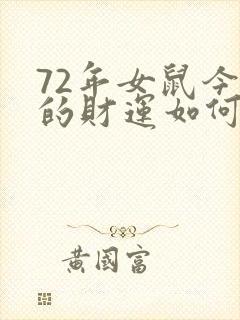 72年女鼠今
的財運如何
黃國富